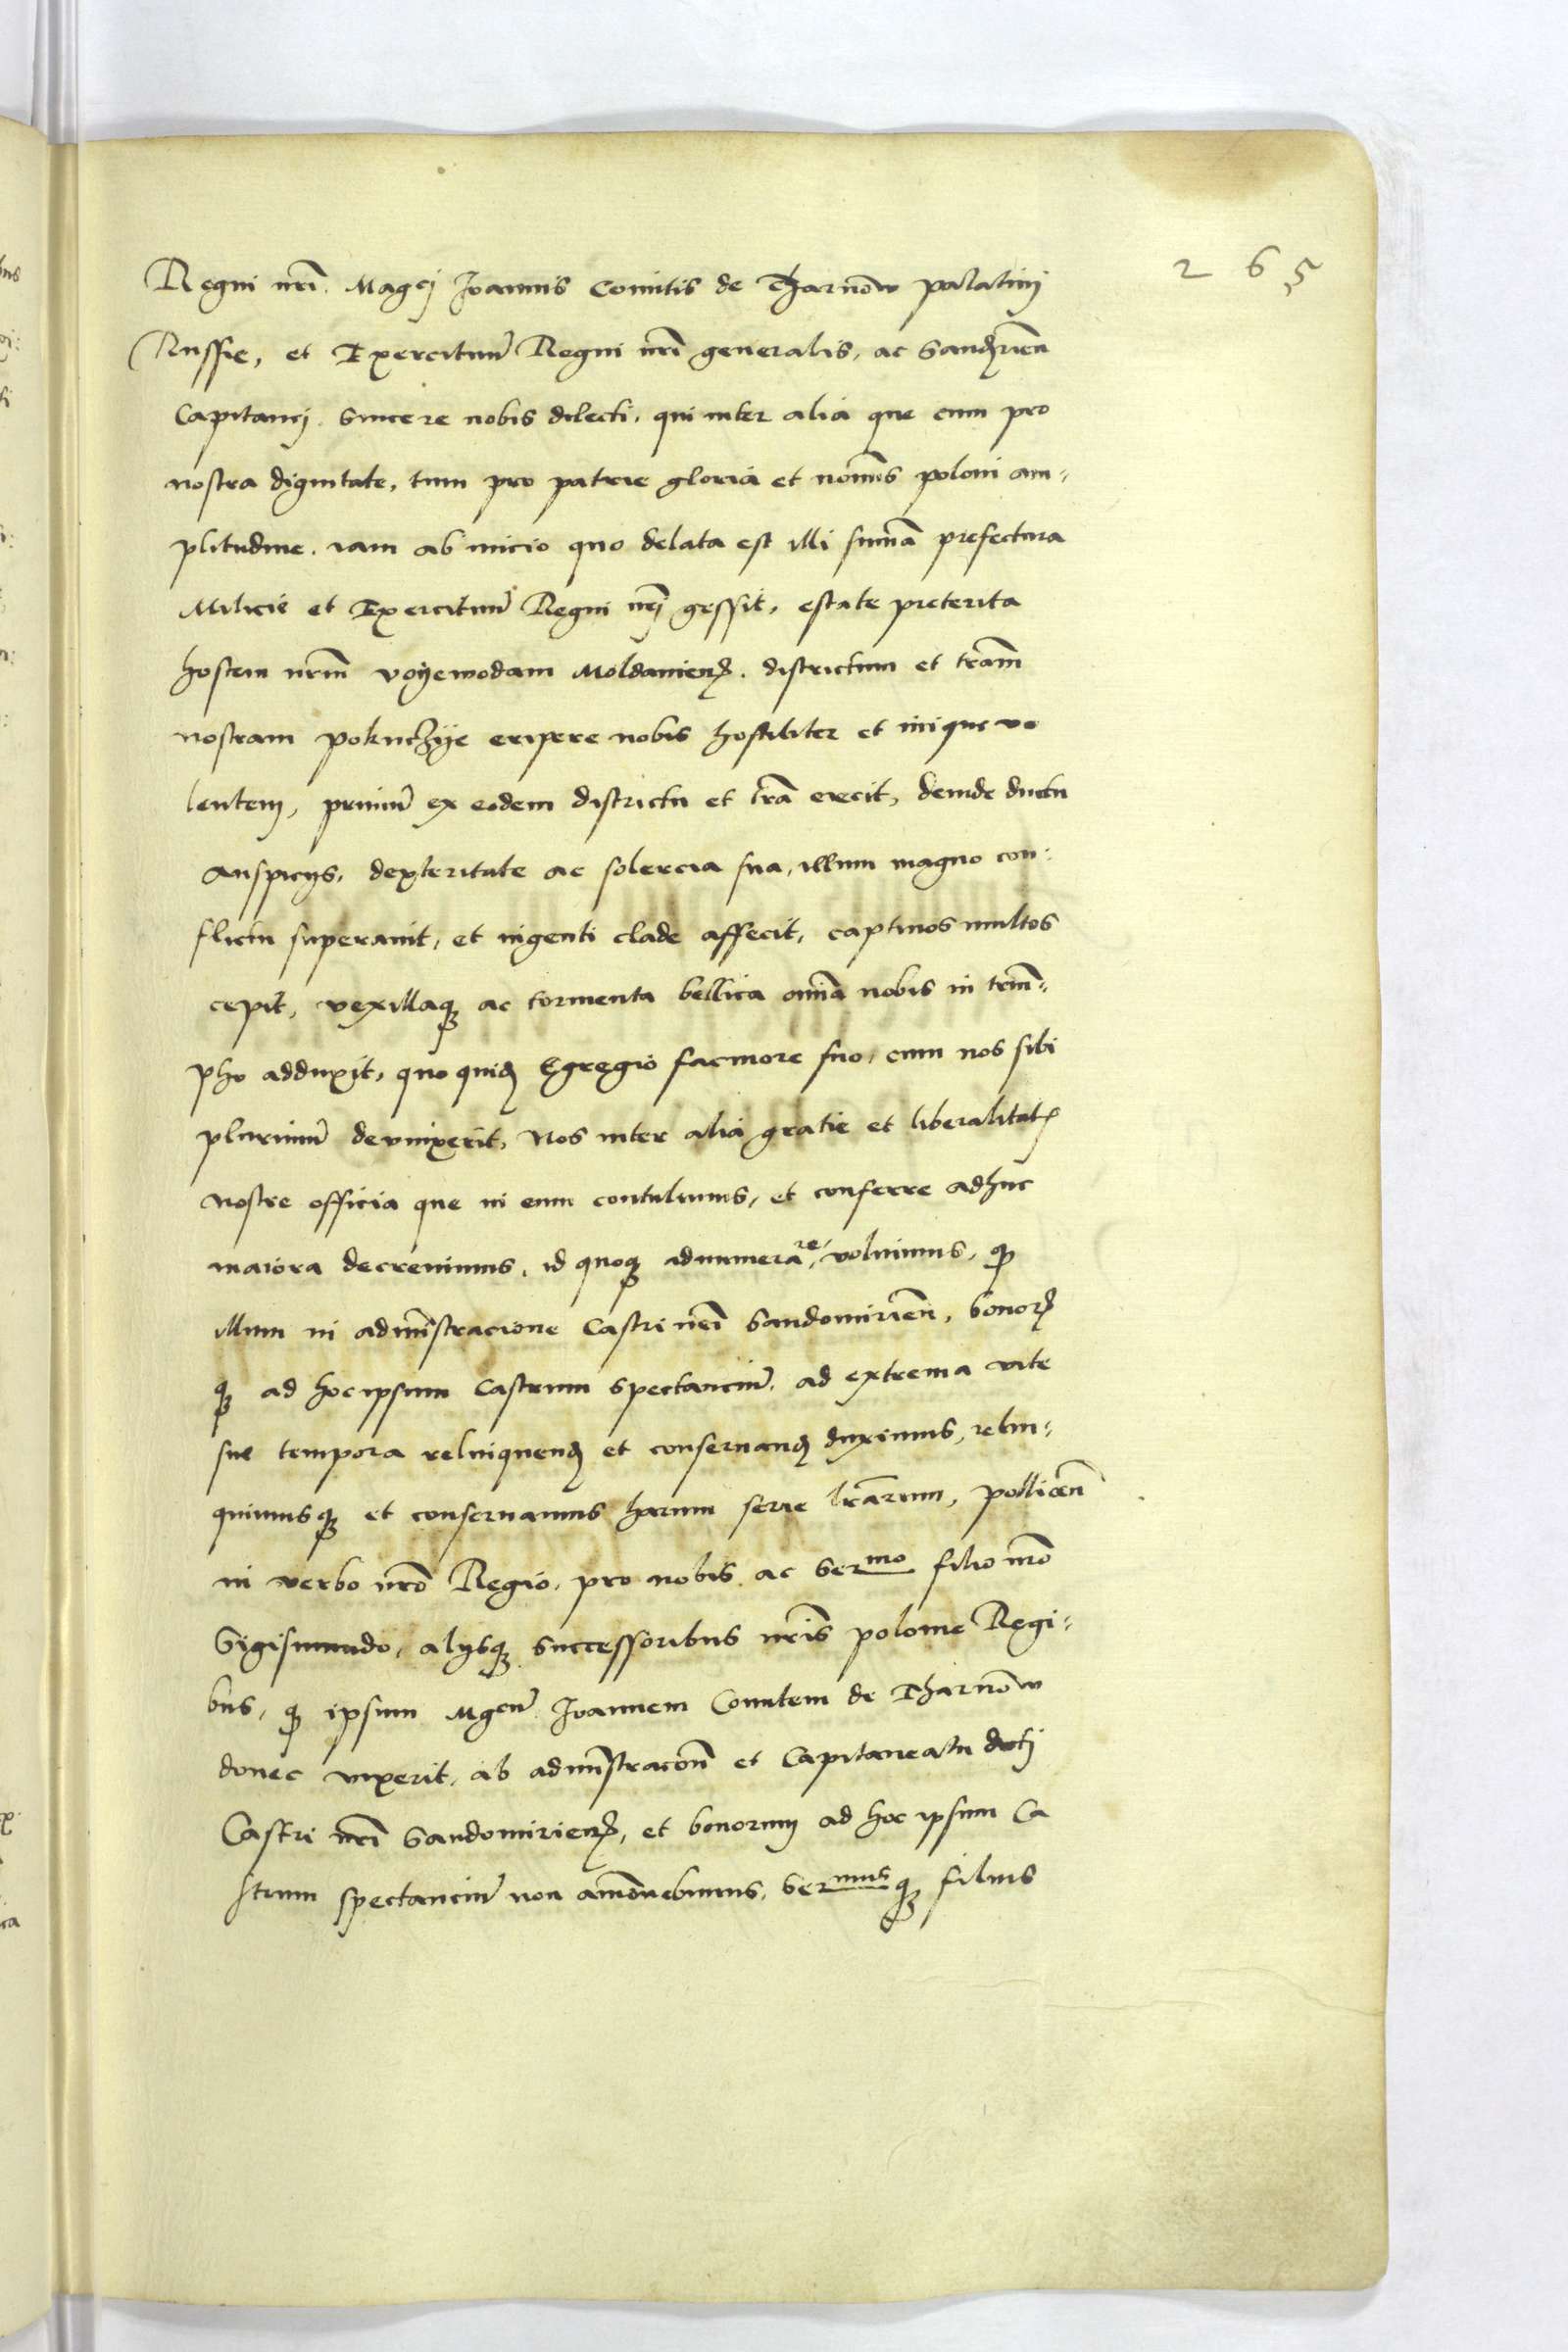 265
Regni nri. Magci Joannis Comitis de Tharnow palatini
Russie, et Exercituum Regni nri generalis, ac Sandomirien
Capitanej. Sincere nobis dilecti, qui inter alia que cum pro
nostra dignitate, tum pro patrie gloria et nominis poloni am-
plitudine, iam ab inicio quo delata est illi summa prefectura
Milicie et Exercituum Regni nrj gessit, estate preterita
hostem nrm voyewodam Moldauien. districtum et tram
nostram pokuczye eripere nobis hostiliter et inique vo
lentem, primum ex eodem districtu et tra eiecit, deinde ductu
auspicys, dexteritate ac solercia sua, illum magno con-
flictu superauit, et ingenti clade affecit, captiuos multos
cepit, vexillaque ac tormenta bellica omnia nobis in trium-
pho adduxit, quo quidem Egregio facinore suo, cum nos sibi
plurimum deuinxerit, Nos inter alia gratie et liberalitatis
nostre officia que in eum contulimus, et conferre adhuc
maiora decreuimus, id quoque adnumerare, voluimus, quod
illum in administracione Castri nri Sandomirien, bonorum
que ad hoc ipsum Castrum spectancium, ad extrema vite
sue tempora relinquendum et conseruandum duximus, relin-
quimusque et conseruamus harum serie lrarum, pollicen
in verbo nro Regio, pro nobis ac Sermo filio nro
Sigismundo, alysque successoribus nris polonie Regi-
bus, quod ipsum Mgcum Joannem Comitem de Tharnow
donec vixerit, ab administracone et Capitaneatu dcti
Castri nri Sandomirien, et bonorum ad hoc ipsum Ca
strum spectancium non amouebimus, Sermusque filius